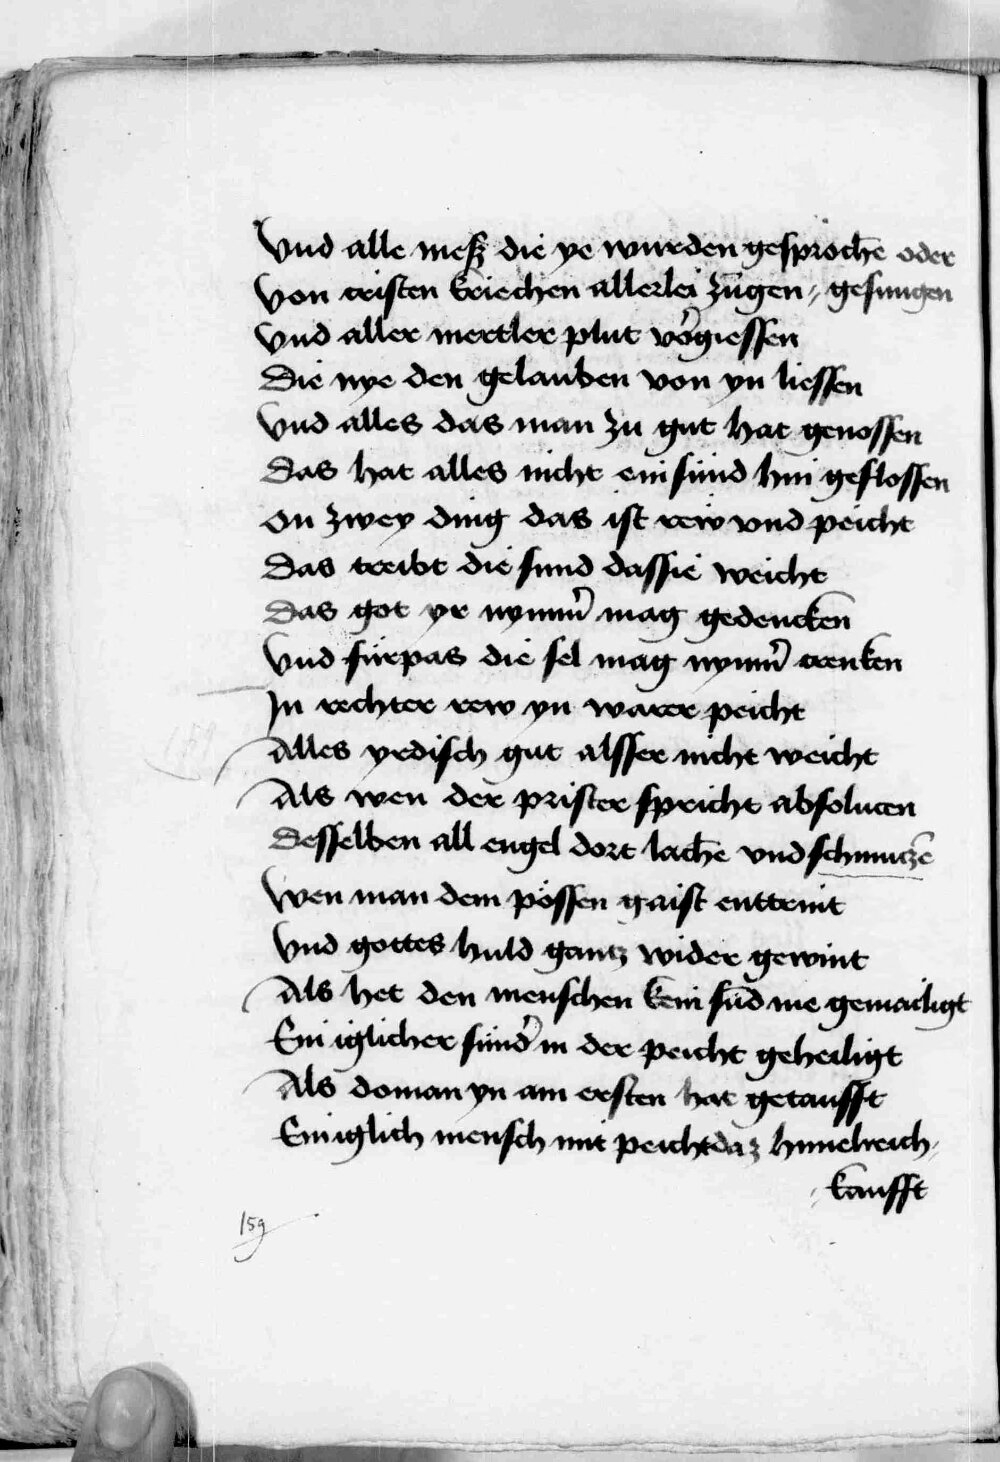 Vnd alle mesz die ye wurden gesprochē oder
Von cristen kriechen allerlei zungen // gesungen
Vnd aller mertler plut vergiessen
Die nye den gelauben von yn liessen
Vnd alles das man zu gut hat genossen
Das hat alles nicht ein sünd hin geflossen
On zwey ding das ist rew vnd peicht
Das treibt die sund dassie weicht
Das got yr nymm̾ mag gedencken
Vnd fürpas die sel mag nymm̾ crenken
In rechter rew yn warer peicht
Alles yrdisch gut alsser nicht weicht
Als wen der prister spricht absolucen
Desselben all engel dort lachē vnd schmuczē
Wen man dem pössen gaist enttrint
Vnd gottes huld gantz wider gewint
Als het den menschen kein sūd nie gemailigt
Ein iglicher sünd̾ in der peicht geheiligt
Als do man yn am ersten hat getaufft
Ein iglich mensch mit peicht daz himelreich //
// kaufft
159